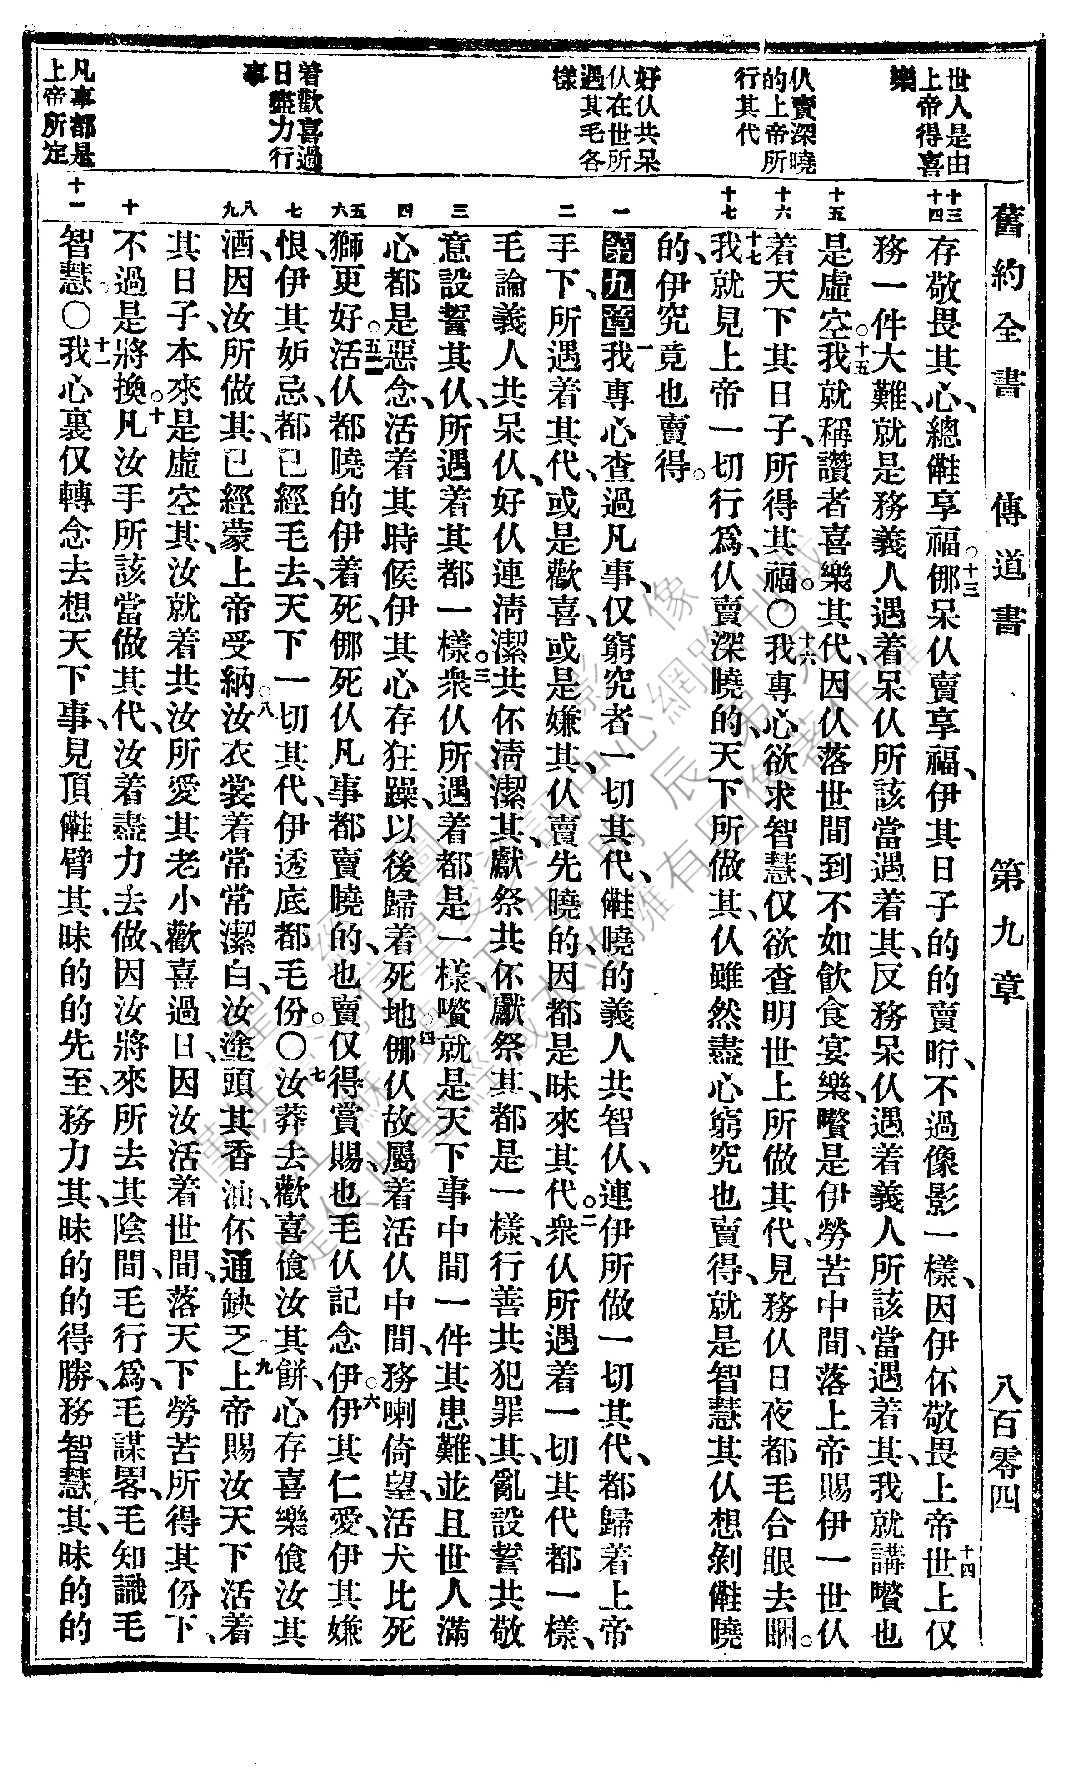 舊約全書 傳道書 第九章 八百零四
世人是由
上帝得喜
樂
仈賣深曉
的上帝所
行其代
好仈共呆
仈在世所
遇其毛各
樣
着歡喜過
日盡力行
事
凡事都是
上帝所定
十三
十四
十五
十六
十七
一
二
三
四
五
六
七
八
九
十
十一
存敬畏其心、總儺享福。十三 𠆧呆仈賣享福、伊其日子的的賣昕、不過像影一樣、因伊伓敬畏上帝。十四 世上仅
務一件大難、就是務義人遇着呆仈所該當遇着其、反務呆仈遇着義人所該當遇着其、我就講嚽也
是虛空。十五 我就稱讚者喜樂其代、因仈落世間到不如飲食宴樂、嚽是伊勞苦中間、落上帝賜伊一世仈
着天下其日子、所得其福。〇十六 我專心欲求智慧、仅欲查明世上所做其代、見務仈日夜都毛合眼去睏。
十七 我就見上帝一切行爲、仈賣深曉的、天下所做其、仈雖然盡心窮究也賣得、就是智慧其仈想剃儺曉
的、伊究竟也賣得。
第九章 一 我專心查過凡事、仅窮究者一切其代、儺曉的義人共智仈、連伊所做一切其代、都歸着上帝
手下、所遇着其代、或是歡喜、或是嫌其、仈賣先曉的、因都是昧來其代。二 衆仈所遇着一切其代都一樣、
毛論義人共呆仈、好仈連淸潔共伓淸潔其、獻祭共伓獻祭其、都是一樣、行善共犯罪其、亂設誓共敬
意設誓其仈、所遇着其都一樣。三 衆仈所遇着都是一樣、嚽就是天下事中間一件其患難、並且世人滿
心都是惡念、活着其時候、伊其心存狂躁、以後歸着死地。四 𠆧仈故屬着活仈中間、務喇倚望、活犬比死
獅更好。五 活仈都曉的伊着死、𠆧死仈凡事都賣曉的、也賣仅得賞賜、也毛仈記念伊。六 伊其仁愛、伊其嫌
恨、伊其妒忌、都已經毛去、天下一切其代、伊透底都毛份。〇七 汝莽去歡喜食汝其餅、心存喜樂食汝其
酒、因汝所做其、已經蒙上帝受納。八 汝衣裳着常常潔白、汝塗頭其香油、伓通缺乏。九 上帝賜汝天下活着
其日子、本來是虛空其、汝就着共汝所愛其老小歡喜過日、因汝活着世間、落天下勞苦所得其份下、
不過是將換。十 凡汝手所該當做其代、汝着盡力去做、因汝將來所去其陰間、毛行爲、毛謀畧、毛知識、毛
智慧。〇十一 我心裏仅轉念去想天下事、見頂儺臂其昧的的先至、務力其、昧的的得勝、務智慧其、昧的的